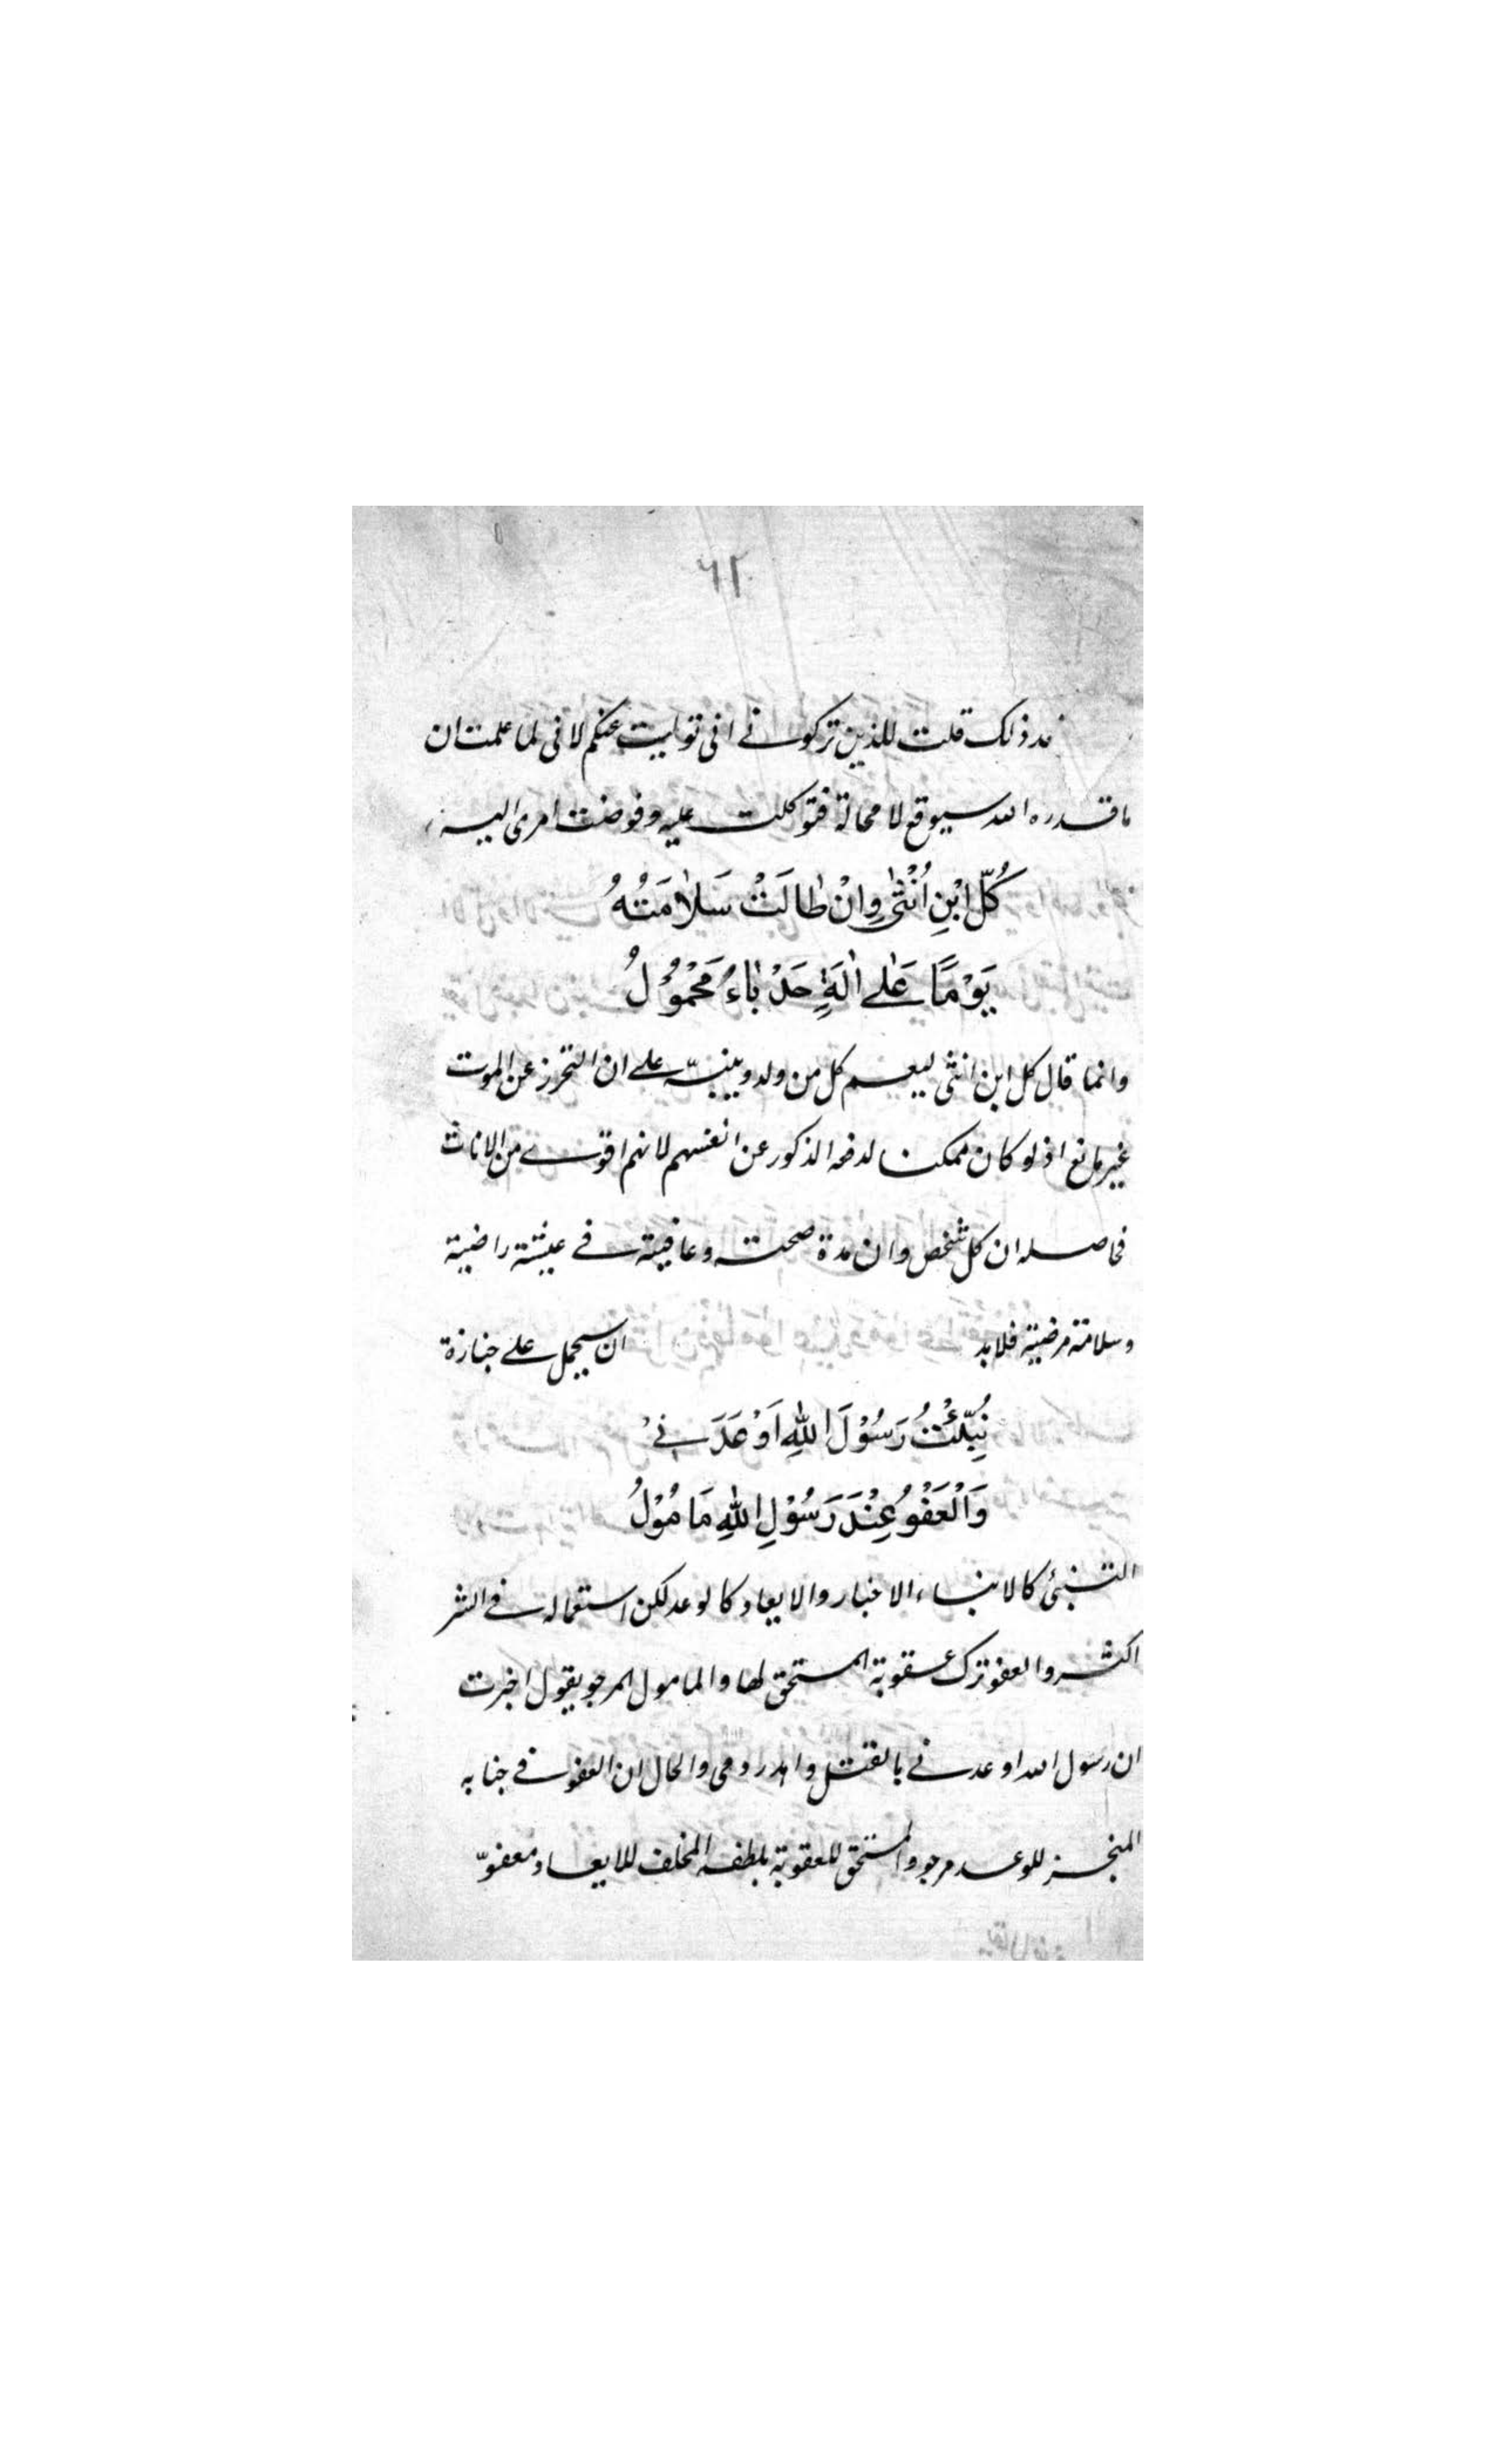 ٦٢
ذلك قلت للذين تركونے انى توليت عنكم لانى لما علمت ان
ما قدره الله سيوقع لا محالة فتوكلت عليه وفوضت امرى اليه
كُلّ ابْنِ اُنْثٰى وِانْ طٰالَتْ سَلاٰمَتُهُ
يَوْمًا عَلٰے اٰلَةٍ حَدْبٰاءُ مَحْمُوْلُ
وانما قال كل ابن انثى ليعم كل من ولد وينبّه علے ان التحرز عن الموت
غير مانع اذ لو كان ممكنا لدفعه الذكور عن انفسهم لانهم اقوے من الاناث
فحاصله ان كل شخص وان مدة صحته وعافيته فے عيشة راضية
وسلامة مرضية فلا بد ان سيحمل علے جنازة
نُبِّئْتُ رَسُوْلَ اللهِ اَوْعَدَنِےْ
وَالْعَفْوُ عِنْدَ رَسُوْلِ اللهِ مَامُوْلُ
التنبئ كالانباء الاخبار والايعاد كالوعد لكن استعماله فے الشر
اكثر والعفو ترك عقوبة المستحق لها والمامول المرجو يقول اخبرت
ان رسول الله اوعدنے بالقتل واهدر دمى والحال ان العفو فے جنابه
المنجز للوعد مرجو والمستحق للعقوبة بلطفه المخلف للايعاد معفوّ